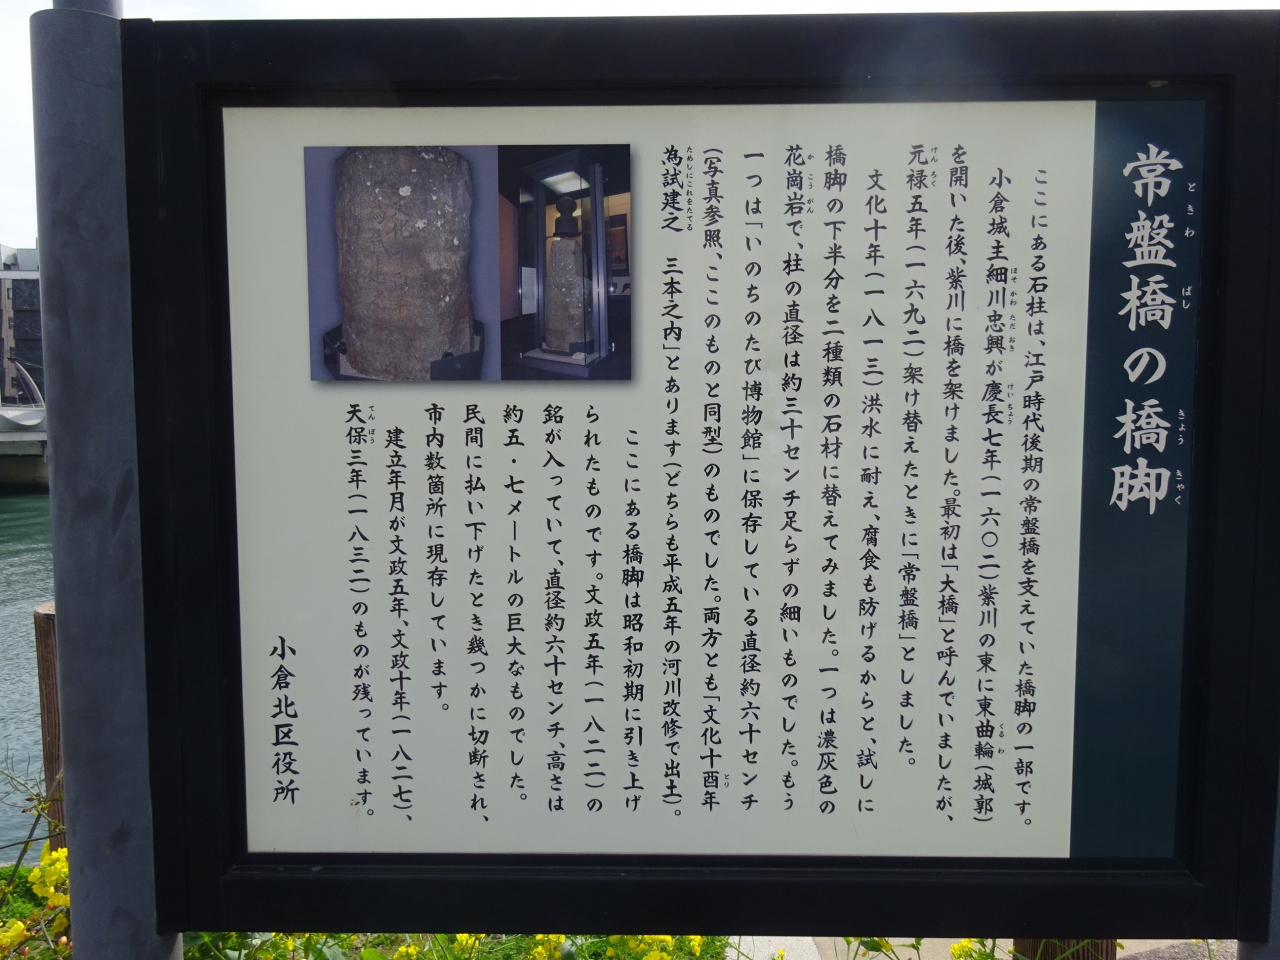 常盤橋の橋脚
ときわ ばし きょう きゃく
ここにある石柱は、江戸時代後期の常盤橋を支えていた橋脚の一部です。
小倉城主細川忠興が慶長七年(一六〇二)紫川の東に東曲輪(城郭)
ほそ かわ ただ おき けい ちょう くる わ
を開いた後、紫川に橋を架けました。最初は「大橋」と呼んでいましたが、
元禄五年(一六九二)架け替えたときに「常盤橋」としました。
げん ろく
文化十年(一八一三)洪水に耐え、腐食も防げるからと、試しに
橋脚の下半分を二種類の石材に替えてみました。一つは濃灰色の
花崗岩で、柱の直径は約三十センチ足らずの細いものでした。もう
か こう がん
一つは「いのちのたび博物館」に保存している直径約六十センチ
(写真参照、ここのものと同型)のものでした。両方とも「文化十酉年
とり
為試建之 三本之内」とあります(どちらも平成五年の河川改修で出土)。
ためしにこれをたてる
ここにある橋脚は昭和初期に引き上げ
られたものです。文政五年(一八二二)の
銘が入っていて、直径約六十センチ、高さは
約五・七メートルの巨大なものでした。
民間に払い下げたとき幾つかに切断され、
市内数箇所に現存しています。
建立年月が文政五年、文政十年(一八二七)、
天保三年(一八三二)のものが残っています。
てん ぽう
小倉北区役所